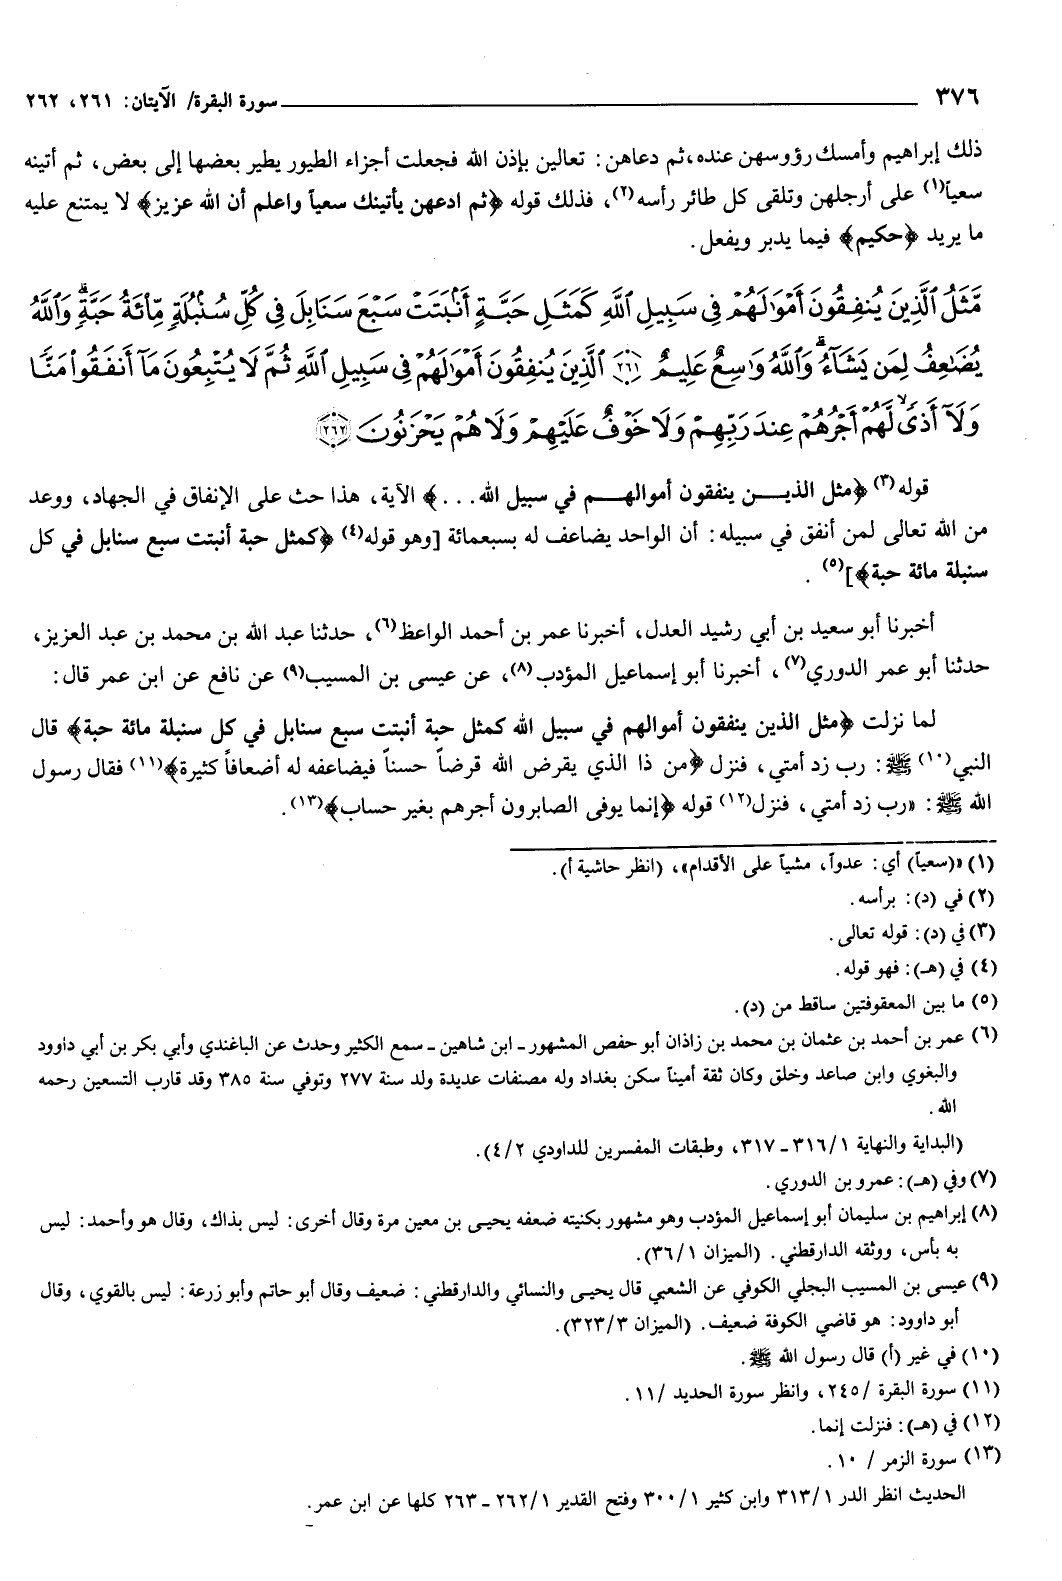 ٣٧٦ سورة البقرة/ الآيتان: ٢٦١، ٢٦٢
ذلك إبراهيم وأمسك رؤوسهن عنده، ثم دعاهن: تعالين بإذن الله فجعلت أجزاء الطيور يطير بعضها إلى بعض، ثم أتينه
سعياً(١) على أرجلهن وتلقى كل طائر رأسه(٢)، فذلك قوله ﴿ثم ادعهن يأتينك سعياً واعلم أن الله عزيز﴾ لا يمتنع عليه
ما يريد ﴿حكيم﴾ فيما يدبر ويفعل.
مَّثَلُ ٱلَّذِينَ يُنفِقُونَ أَمْوَٰلَهُمْ فِى سَبِيلِ ٱللَّهِ كَمَثَلِ حَبَّةٍ أَنۢبَتَتْ سَبْعَ سَنَابِلَ فِى كُلِّ سُنۢبُلَةٍ مِّا۟ئَةُ حَبَّةٍ ۗ وَٱللَّهُ
يُضَٰعِفُ لِمَن يَشَآءُ ۗ وَٱللَّهُ وَٰسِعٌ عَلِيمٌ ٢٦١ ٱلَّذِينَ يُنفِقُونَ أَمْوَٰلَهُمْ فِى سَبِيلِ ٱللَّهِ ثُمَّ لَا يُتْبِعُونَ مَآ أَنفَقُوا۟ مَنًّا
وَلَآ أَذًى ۙ لَّهُمْ أَجْرُهُمْ عِندَ رَبِّهِمْ وَلَا خَوْفٌ عَلَيْهِمْ وَلَا هُمْ يَحْزَنُونَ ٢٦٢
قوله(٣) ﴿مثل الذيــن ينفقون أموالهــم في سبيل الله...﴾ الآية، هذا حث على الإنفاق في الجهاد، ووعد
من الله تعالى لمن أنفق في سبيله: أن الواحد يضاعف له بسبعمائة [وهو قوله(٤) ﴿كمثل حبة أنبتت سبع سنابل في كل
سنبلة مائة حبة﴾](٥).
أخبرنا أبو سعيد بن أبي رشيد العدل، أخبرنا عمر بن أحمد الواعظ(٦)، حدثنا عبد الله بن محمد بن عبد العزيز،
حدثنا أبو عمر الدوري(٧)، أخبرنا أبو إسماعيل المؤدب(٨)، عن عيسى بن المسيب(٩) عن نافع عن ابن عمر قال:
لما نزلت ﴿مثل الذين ينفقون أموالهم في سبيل الله كمثل حبة أنبتت سبع سنابل في كل سنبلة مائة حبة﴾ قال
النبي(١٠) ﷺ: رب زد أمتي، فنزل ﴿من ذا الذي يقرض الله قرضاً حسناً فيضاعفه له أضعافاً كثيرة﴾(١١) فقال رسول
الله ﷺ: «رب زد أمتي، فنزل(١٢) قوله ﴿إنما يوفى الصابرون أجرهم بغير حساب﴾(١٣).
(١) «(سعياً) أي: عدواً، مشياً على الأقدام»، (انظر حاشية أ).
(٢) في (د): برأسه.
(٣) في (د): قوله تعالى.
(٤) في (هـ): فهو قوله.
(٥) ما بين المعقوفتين ساقط من (د).
(٦) عمر بن أحمد بن عثمان بن محمد بن زاذان أبو حفص المشهور ـ ابن شاهين ـ سمع الكثير وحدث عن الباغندي وأبي بكر بن أبي داوود
والبغوي وابن صاعد وخلق وكان ثقة أميناً سكن بغداد وله مصنفات عديدة ولد سنة ٢٧٧ وتوفي سنة ٣٨٥ وقد قارب التسعين رحمه
الله.
(البداية والنهاية ٣١٦/١ ـ ٣١٧، وطبقات المفسرين للداودي ٤/٢).
(٧) وفي (هـ): عمرو بن الدوري.
(٨) إبراهيم بن سليمان أبو إسماعيل المؤدب وهو مشهور بكنيته ضعفه يحيى بن معين مرة وقال أخرى: ليس بذاك، وقال هو وأحمد: ليس
به بأس، ووثقه الدارقطني. (الميزان ٣٦/١).
(٩) عيسى بن المسيب البجلي الكوفي عن الشعبي قال يحيى والنسائي والدارقطني: ضعيف وقال أبو حاتم وأبو زرعة: ليس بالقوي، وقال
أبو داوود: هو قاضي الكوفة ضعيف. (الميزان ٣٢٣/٣).
(١٠) في غير (أ) قال رسول الله ﷺ.
(١١) سورة البقرة /٢٤٥، وانظر سورة الحديد /١١.
(١٢) في (هـ): فنزلت إنما.
(١٣) سورة الزمر / ١٠.
الحديث انظر الدر ٣١٣/١ وابن كثير ٣٠٠/١ وفتح القدير ٢٦٢/١ ـ ٢٦٣ كلها عن ابن عمر.